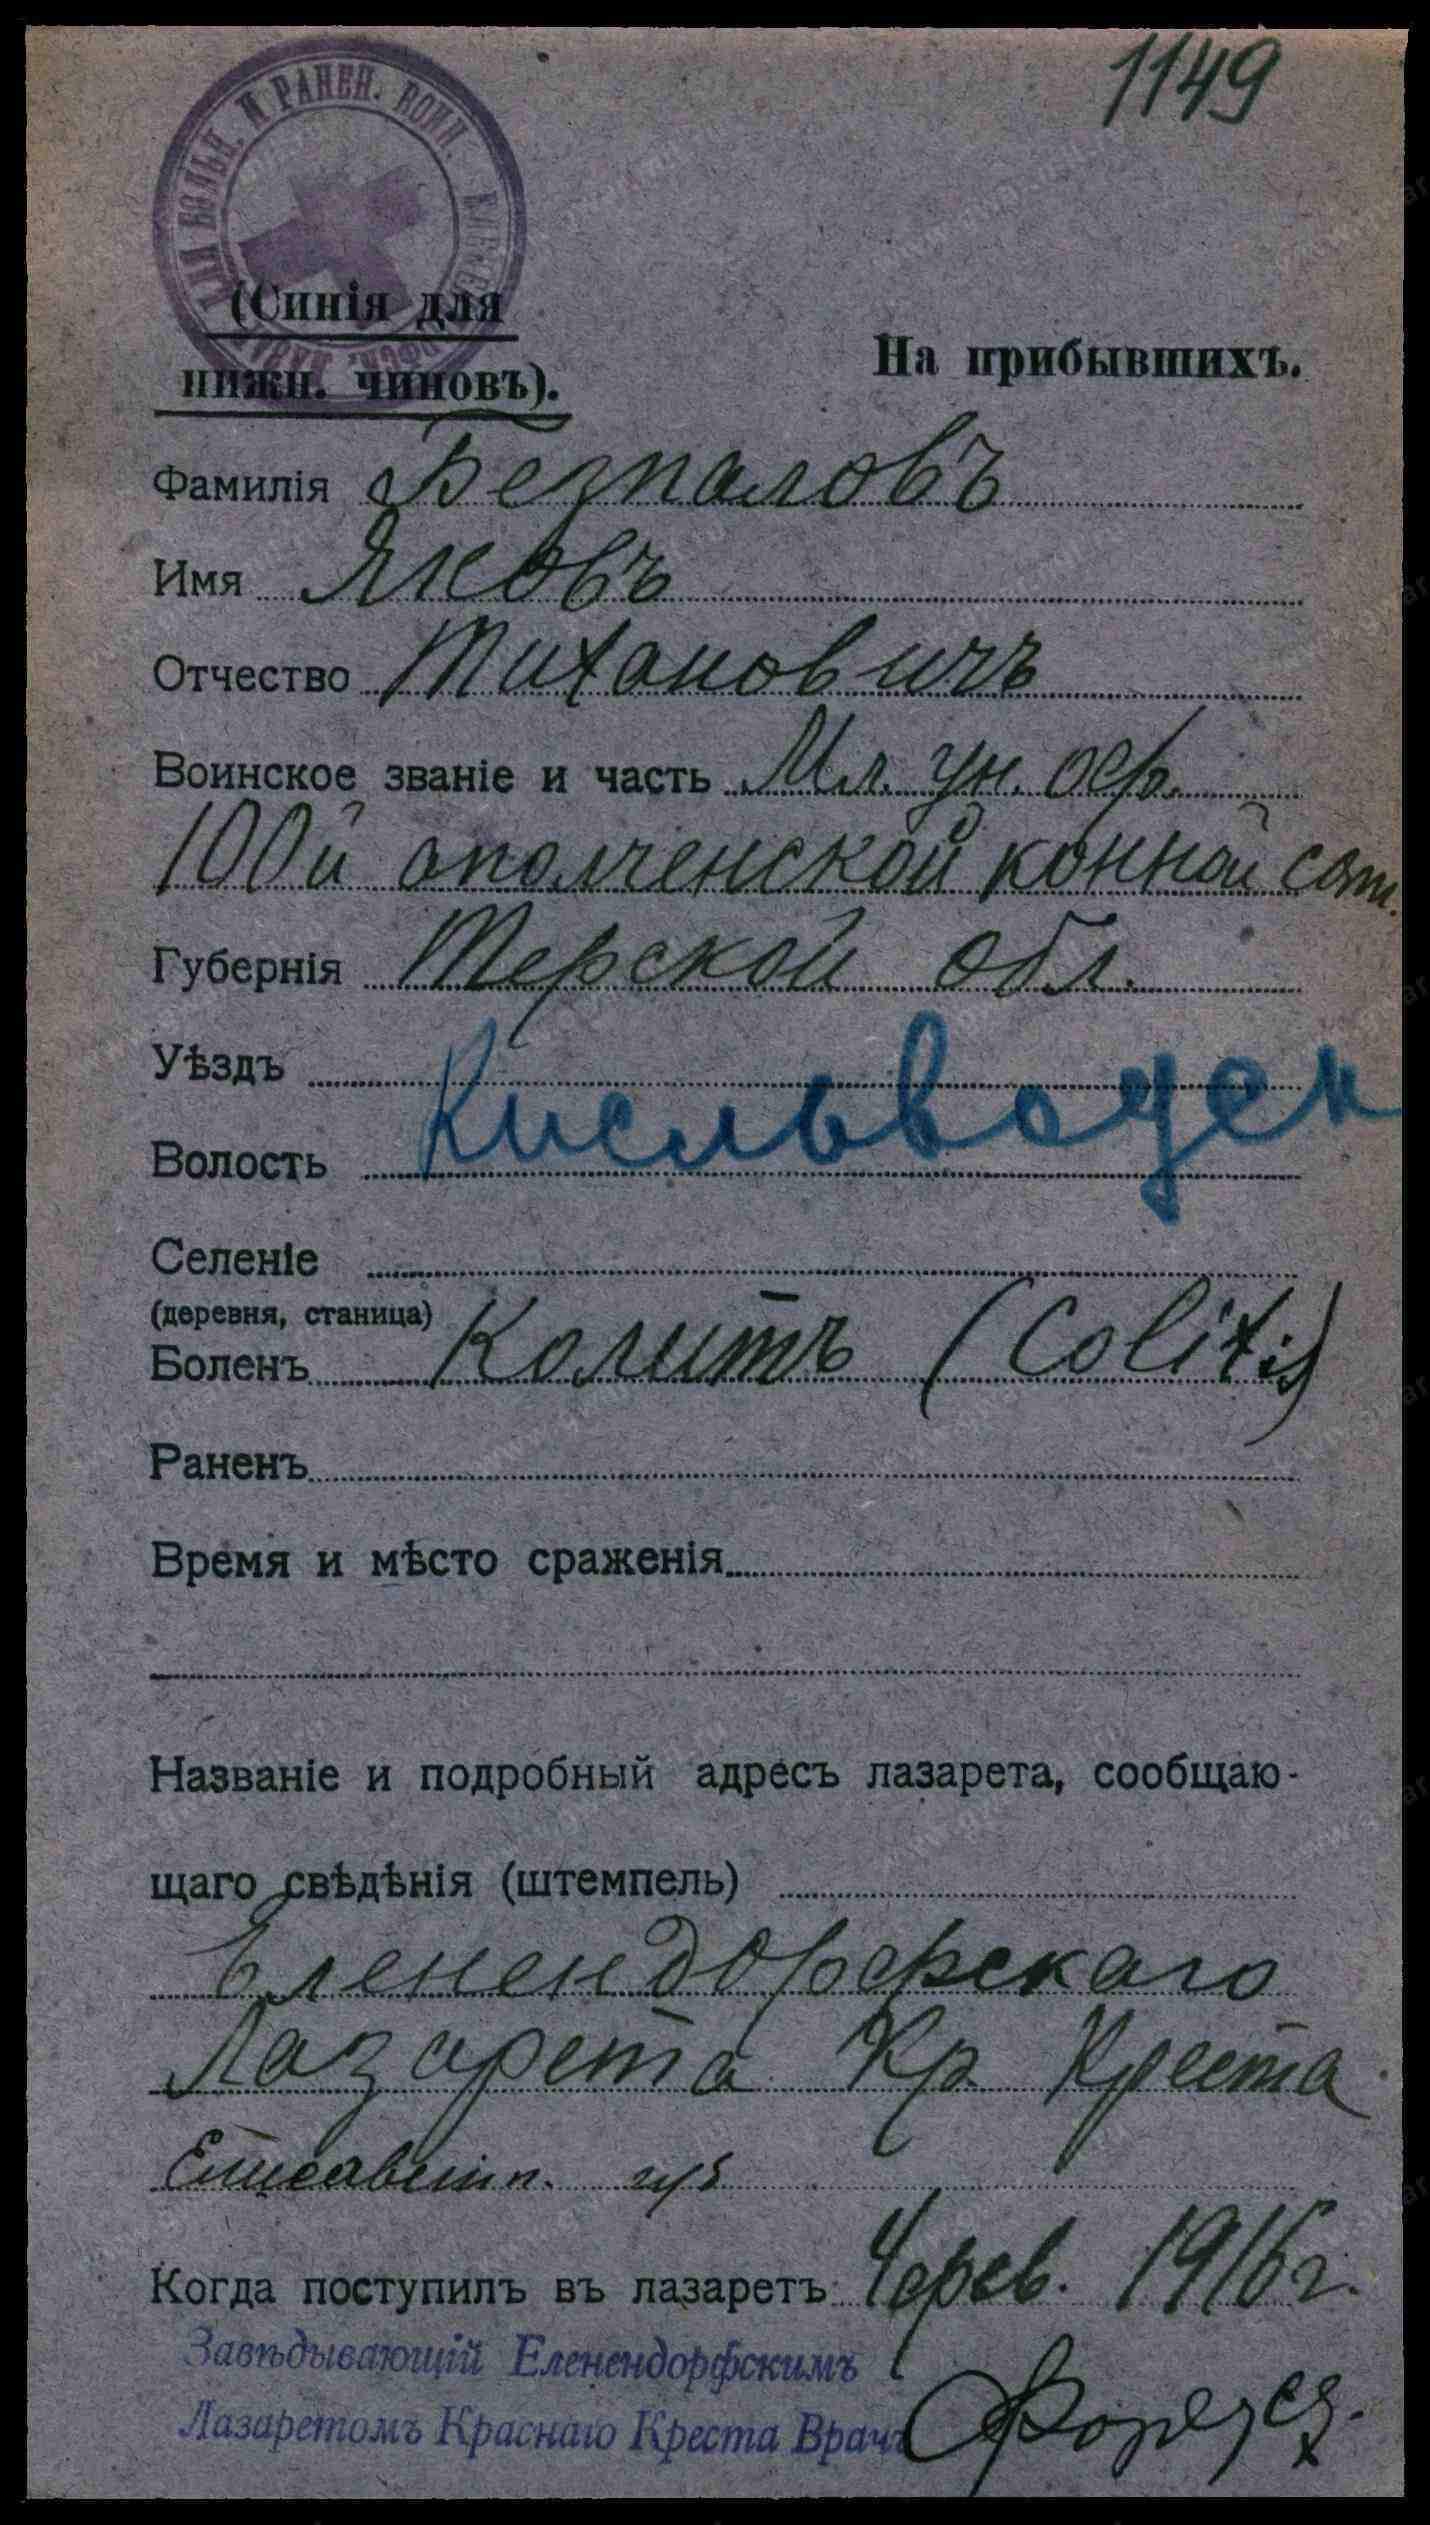 1149
ДЛЯ БОЛЬН. И РАНЕН. ВОИН.
(Синія для
нижн. чиновъ).
На прибывшихъ.
Фамилія Безпаловъ
Имя Яковъ
Отчество Тихановичъ
Воинское званіе и часть Мл. ун. оф.
100й ополченской конной сотн.
Губернія Терской обл.
Уѣздъ
Кисльводск
Волость
Селеніе
(деревня, станица)
Боленъ Колитъ (Colitis)
Раненъ
Время и мѣсто сраженія
Названіе и подробный адресъ лазарета, сообщаю-
щаго свѣдѣнія (штемпель)
Еленендорфскаго
Лазарета Кр. Креста
Елисаветп. губ
Когда поступилъ въ лазаретъ 4 фев. 1916 г.
Завѣдывающій Еленендорфскимъ
Лазаретомъ Краснаго Креста Врачъ